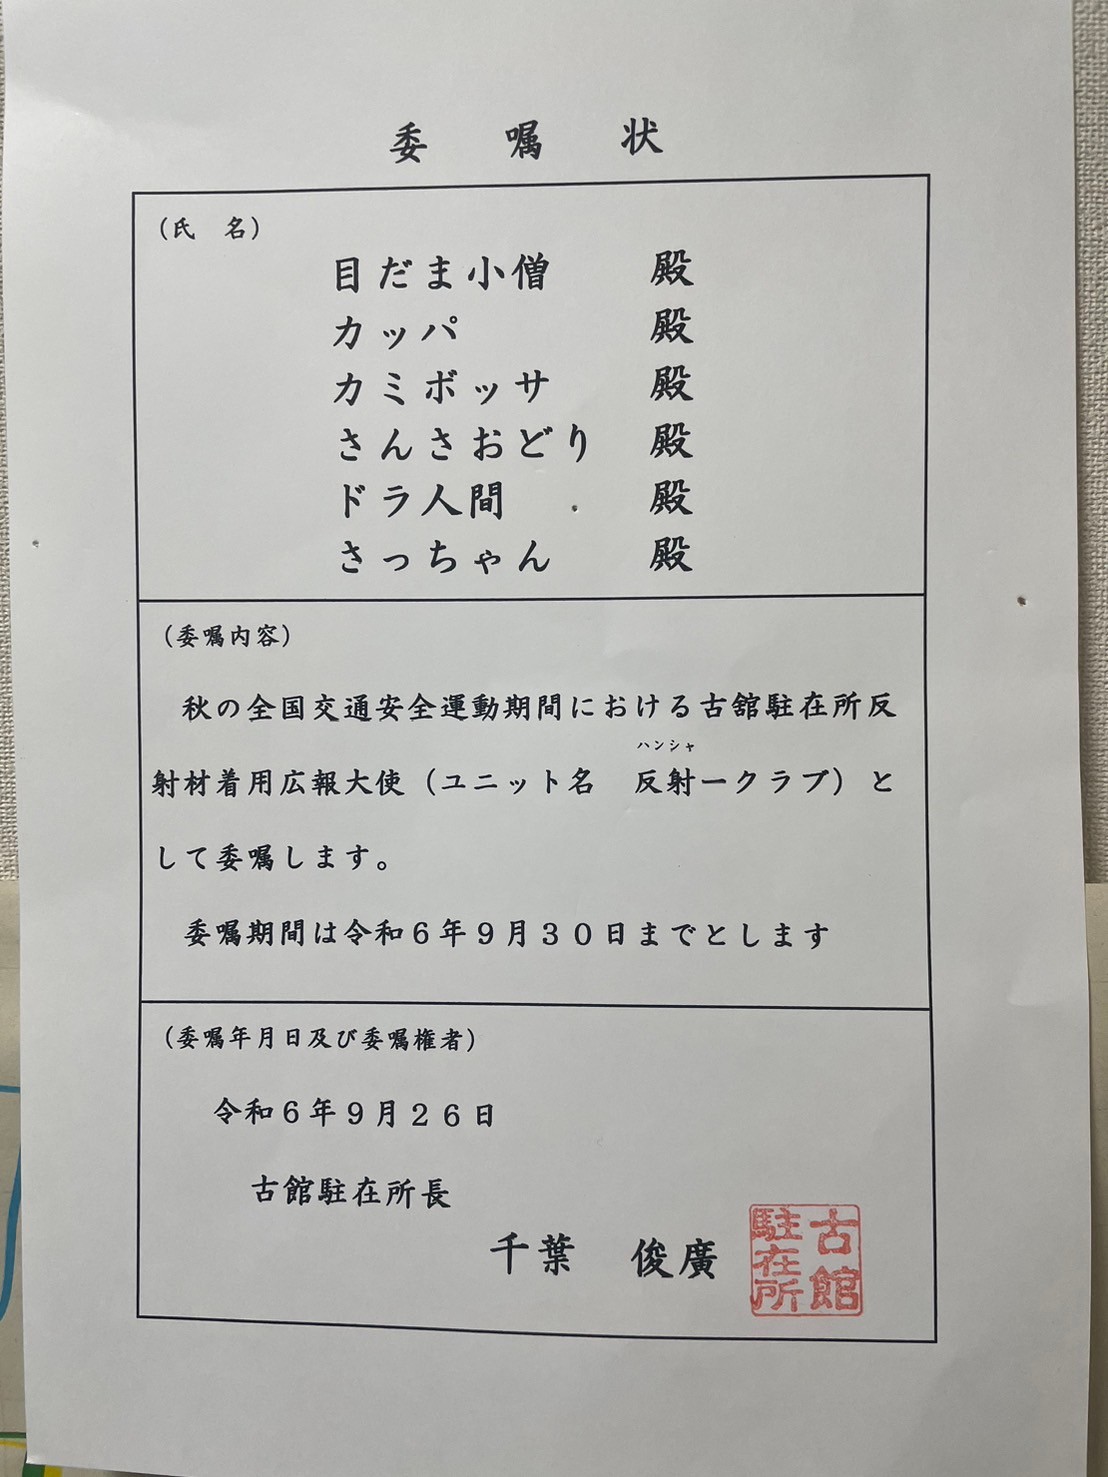 委嘱状
（氏　名）
目だま小僧　殿
カッパ　殿
カミボッサ　殿
さんさおどり　殿
ドラ人間　殿
さっちゃん　殿
（委嘱内容）
秋の全国交通安全運動期間における古舘駐在所反
ハンシャ
射材着用広報大使（ユニット名　反射ークラブ）と
して委嘱します。
委嘱期間は令和６年９月３０日までとします
（委嘱年月日及び委嘱権者）
令和６年９月２６日
古館駐在所長
千葉　俊廣
古館
駐在所